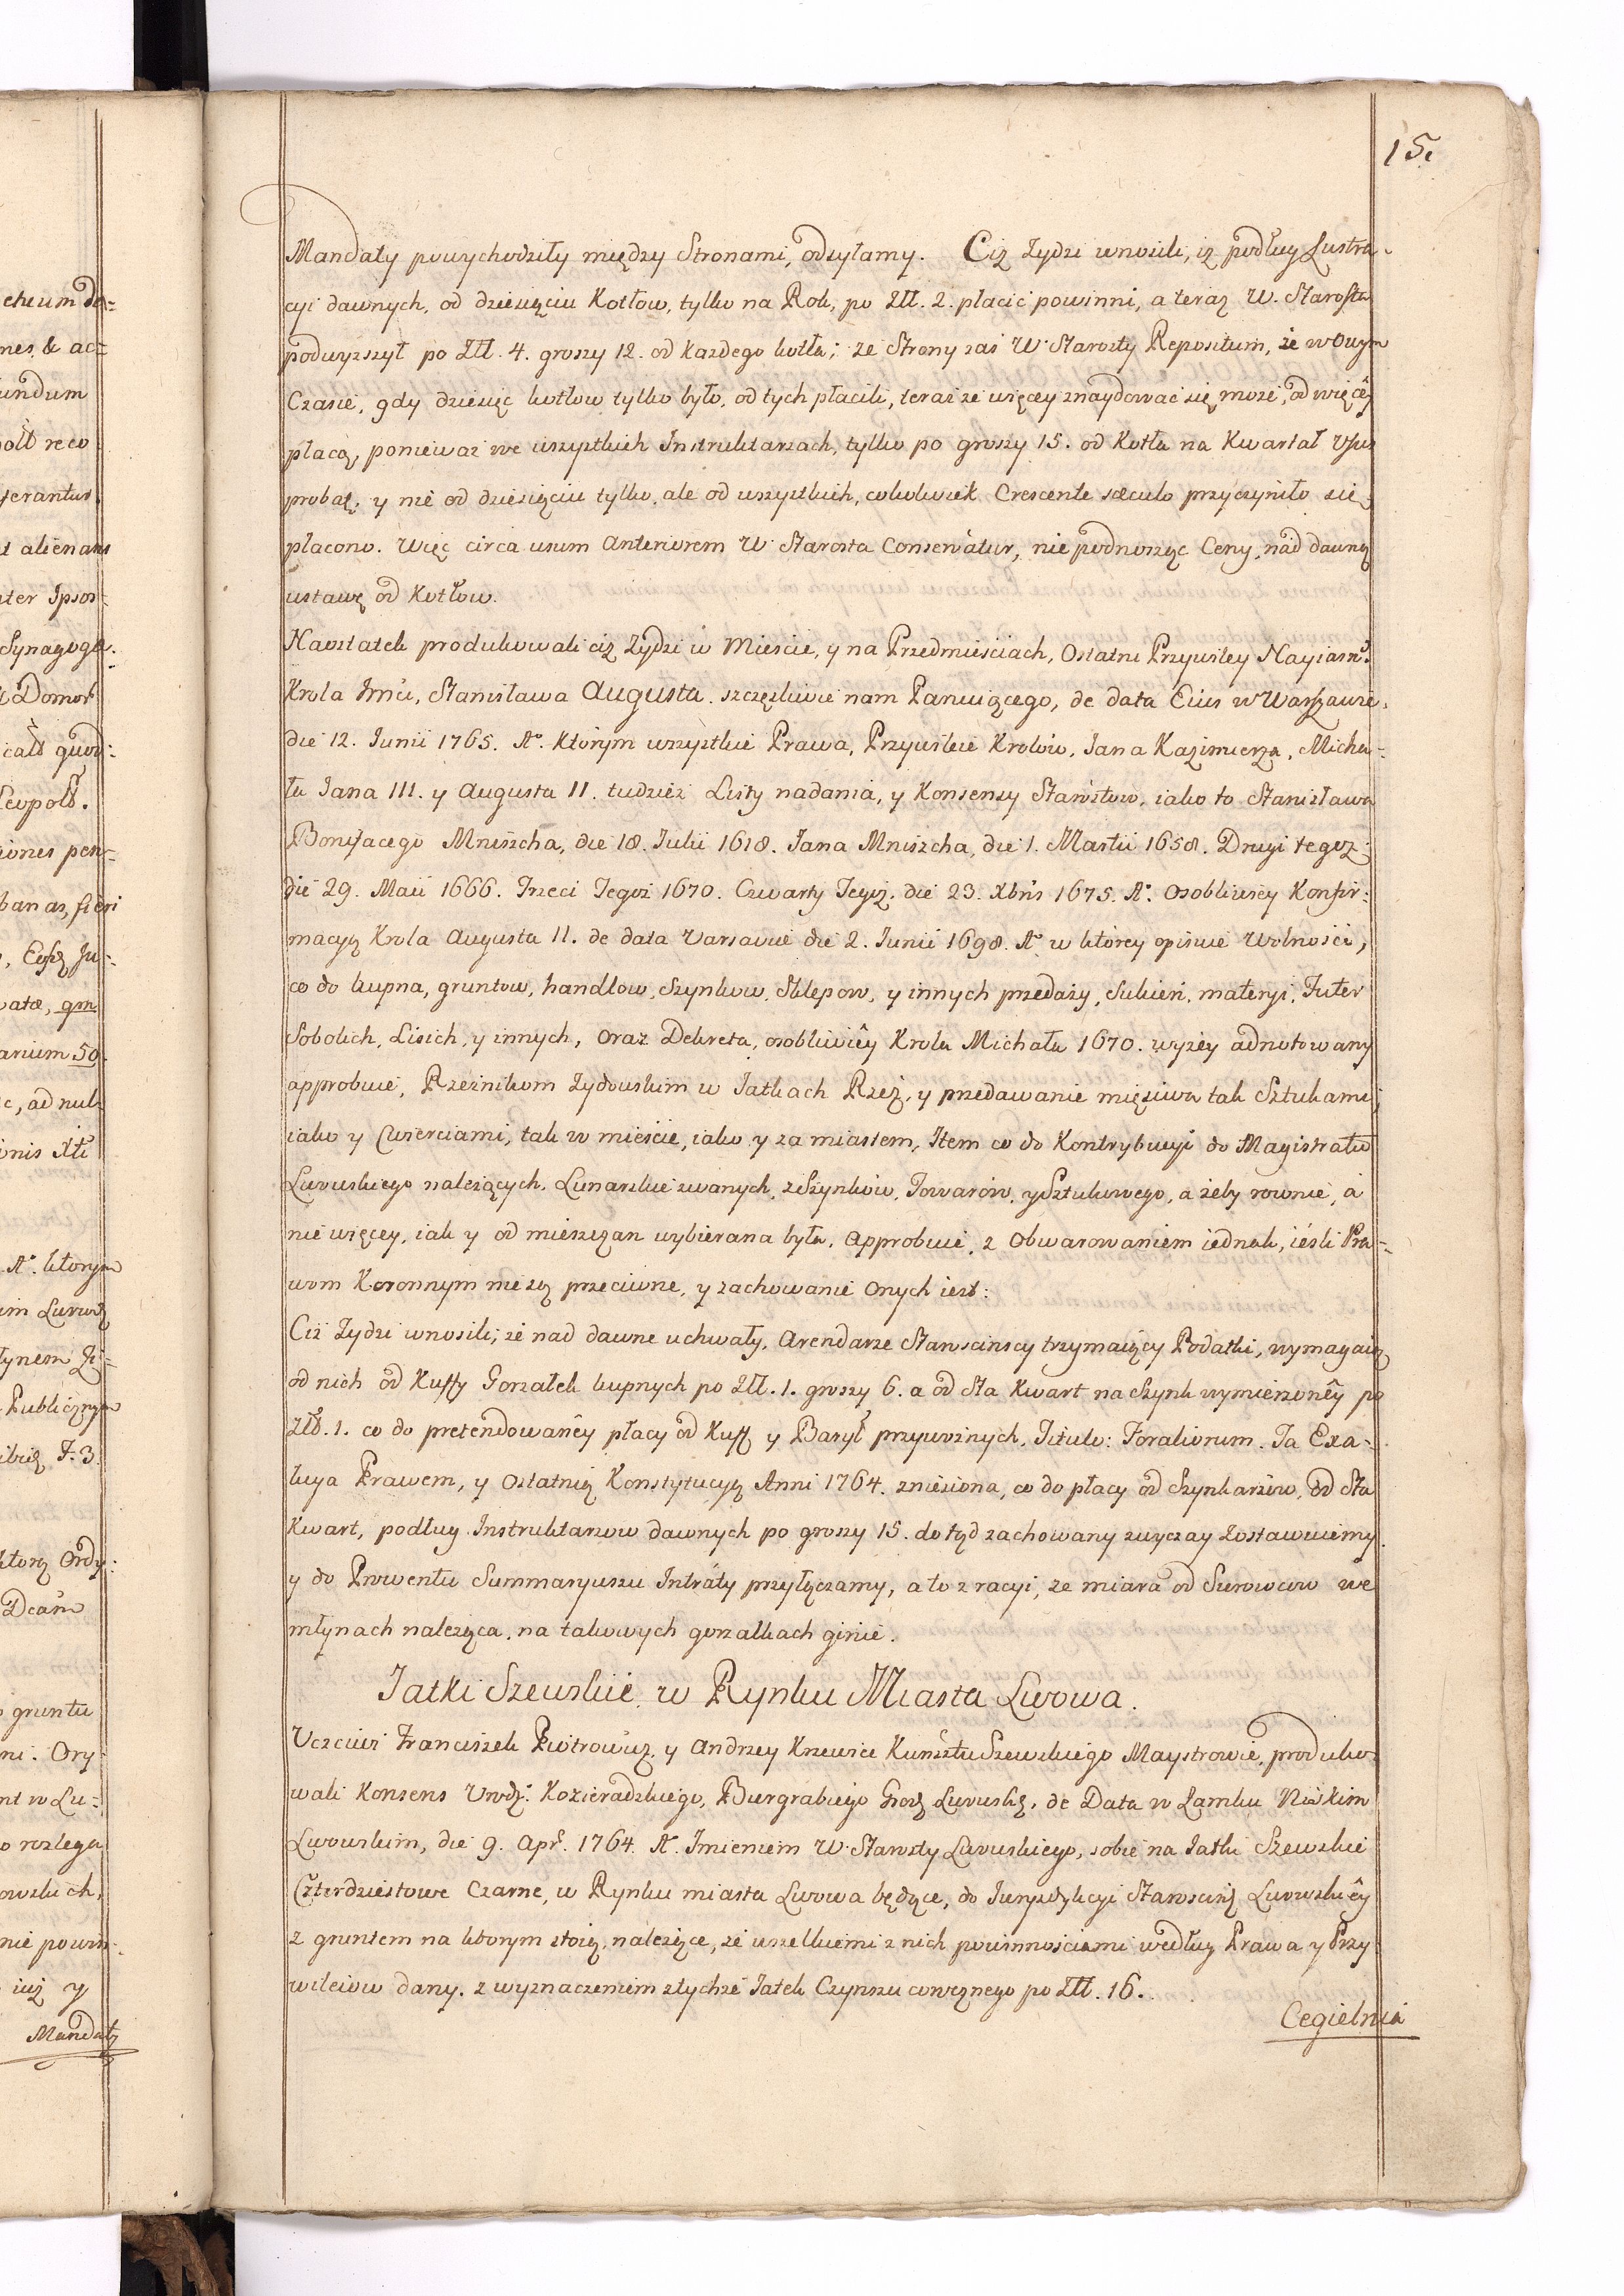 15.
Mandaty powychodziły między Stronami, odsyłamy. Ciż Zydzi wnosili, iz podług Lustra-
cyi dawnych, od dziesięciu Kotłow, tylko na Rok, po Złł. 2. płacić powinni, a teraz W. Starosta
podwyzszył po Złł. 4. groszy 12. od kazdego kotła; ze Strony zaś W. Starosty Repositum, że w Owym
Czasie, gdy dziesięć kotłow tylko było, od tych płacili, teraz ze więcey znaydować się może, od więcey
płacą, poniewaz we wszystkich Instruktarzach, tylko po groszy 15. od Kotła na Kwartał Usus
probat, y nie od dziesięciu tylko, ale od wszystkich, cokolwiek Crescente sæculo przyczyniło się,
płacono. Więc circa usum Anteriorem W. Starosta Conservatur, nie podnosząc Ceny, nad dawną
ustawę od Kotłow.
Naostatek produkowali ciż Zydzi w Mieście, y na Przedmieściach, Ostatni Przywiley Nayiasń:
Krola Jmći, Stanisława Augusta, szczęśliwie nam Panuiącego, de data Eius w Warszawie,
die 12. Junii 1765. A°. Ktorym wszystkie Prawa, Przywileie Krolow, Jana Kazimierza, Micha-
ła Jana III. y Augusta II. tudziez Listy nadania, y Konsensy Starostow, iako to Stanisława
Bonifacego Mniszcha, die 18. Julii 1618. Jana Mniszcha, die 1. Martii 1658. Drugi tegoz
die 29. Maii 1666. Trzeci Tegoż 1670. Czwarty Tegoż, die 23. Xbris 1675. A°. Osobliwscy Konfir-
macyą Krola Augusta II. de data Varsaviæ die 2. Junii 1698. A° w ktorey opisuie Wolności,
co do kupna, gruntow, handlow, Szynkow, Sklepow, y innych przedaży, Sukien, materyi, Futer
Sobolich, Lisich, y innych, oraz Dekreta, osobliwiey Krola Michała 1670. wyżey adnotowany
approbuie, Rzeznikom Zydowskim w Jatkach Rzeź, y przedawanie mięsiwa tak Sztukami,
iako y Cwierciami, tak w mieście, iako y za miastem, Item co do Kontrybucyi do Magistratu
Lwowskiego należących, Lunarskie zwanych, z Szynkow, Towarow, y Sztukowego, a żeby rownie, a
nie więcey, iak y od mieszczan wybierana była, Approbuie, z Obwarowaniem iednak, ieśli Pra-
wom Koronnym nie są przeciwne, y zachowanie Onych iest:
Ciż Zydzi wnosili, że nad dawne uchwały, Arendarze Starościnscy trzymaiący Podatki, wymagaią
od nich od Kuffy Gorzałek kupnych po Złł. 1. groszy 6. a od Sta Kwart na Szynk wymierzoney po
Złł. 1. co do pretendowaney płacy od Kuff y Barył przywoznych, Titulo: Foraliorum. Ta Exa-
kcya Prawem, y Ostatnią Konstytucyą Anni 1764. zniesiona, co do płacy od Szynkarzow, od Sta
Kwart, podług Instruktarzow dawnych po groszy 15. do tąd zachowany zwyczay Zostawuiemy,
y do Prowentu Summaryuszu Intraty przyłączamy, a to z racyi, że miara od Surowcow we
młynach należąca, na takowych gorzałkach ginie.
Jatki Szewskie w Rynku Miasta Lwowa.
Uczciwi Franciszek Piotrowicz, y Andrzey Kunsztu Szewskiego Maystrowie, produko-
wali Konsens Urodz: Kozieradzkiego, Burgrabiego Grodz Lwowskg, de Data w Zamku Nizkim
Lwowskim, die 9. Apr. 1764. A°. Imieniem W. Starosty Lwowskiego, sobie na Jatki Szewskie
Czterdziestowe Czarne, w Rynku miasta Lwowa będące, do Jurysdykcyi Starościń Lwowskiey
z gruntem na ktorym stoią, należące, ze wszelkiemi z nich powinnościami według Prawa y Przy-
wileiow dany, z wyznaczeniem z tychże Jatek Czynszu corocznego po Złł. 16.
Cegielnia